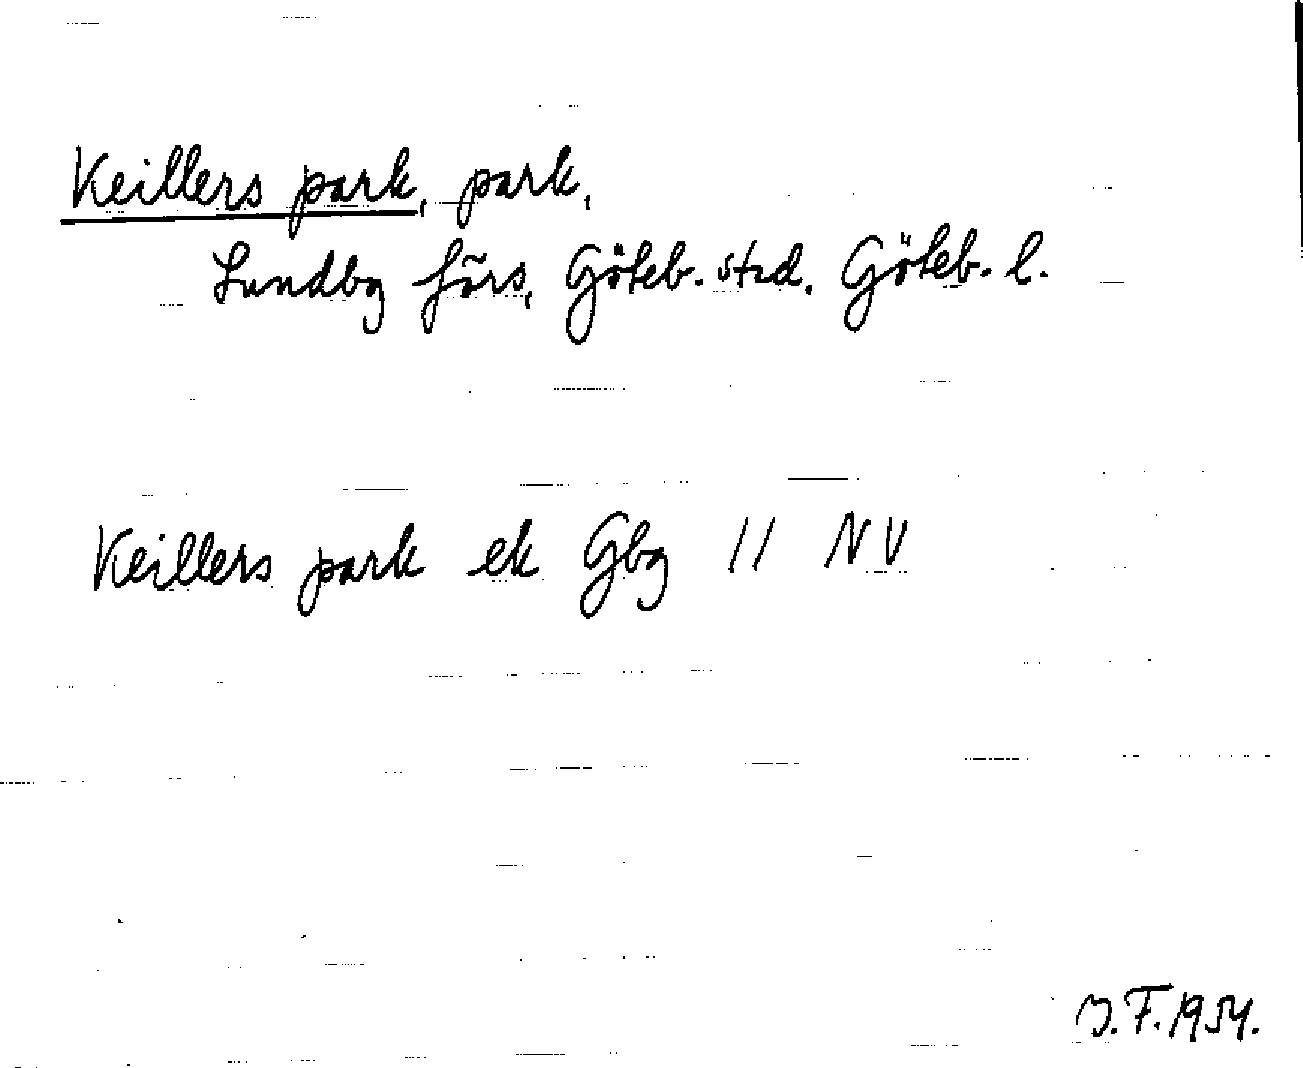 Keillers park, park,
Lundby förs, Göteb. std. Göteb. l.
Keillers park ek Gbg 11 NV
J.F. 1954.